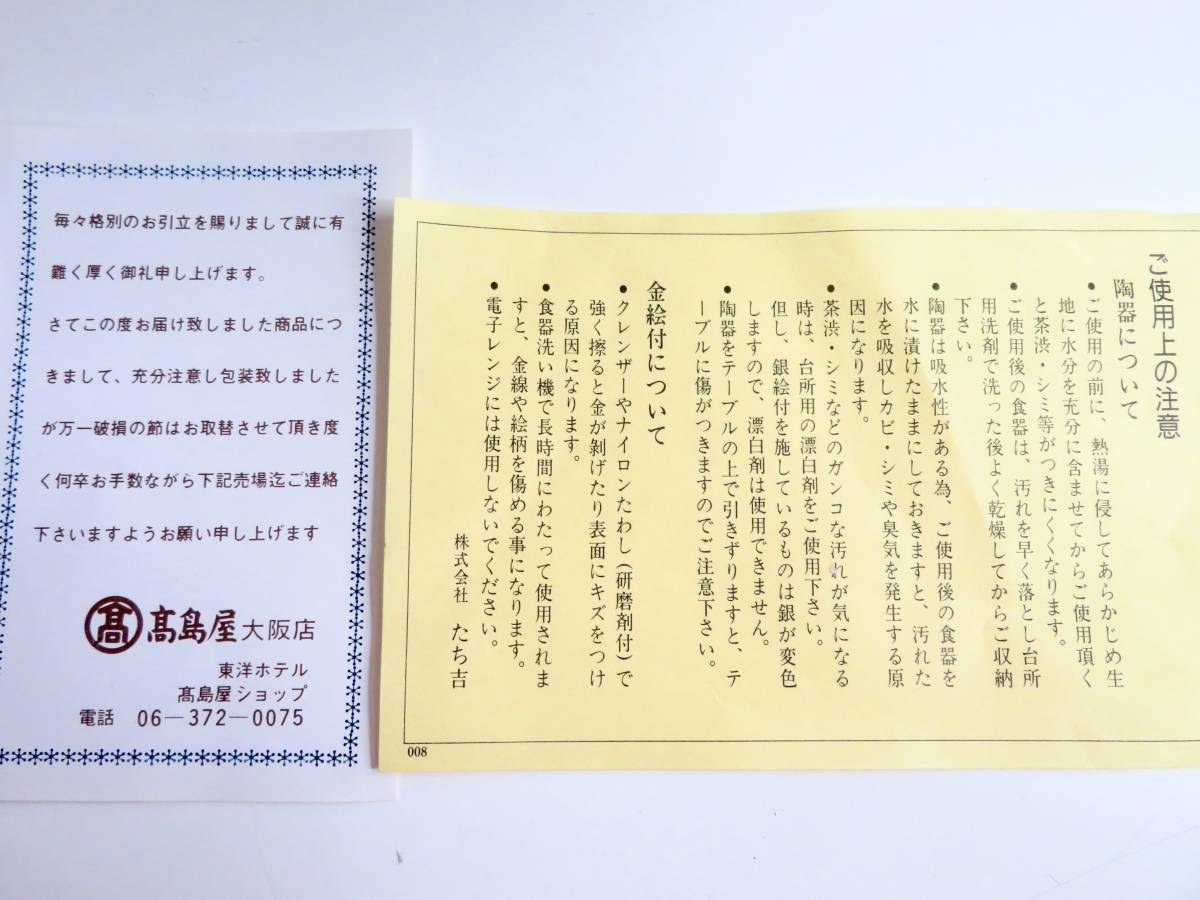 毎々格別のお引立を賜りまして誠に有
難く厚く御礼申し上げます。
さてこの度お届け致しました商品につ
きまして、充分注意し包装致しました
が万一破損の節はお取替させて頂き度
く何卒お手数ながら下記売場迄ご連絡
下さいますようお願い申し上げます
髙 髙島屋大阪店
東洋ホテル
髙島屋ショップ
電話 06—372—0075
ご使用上の注意
陶器について
●ご使用の前に、熱湯に侵してあらかじめ生
地に水分を充分に含ませてからご使用頂く
と茶渋・シミ等がつきにくくなります。
●ご使用後の食器は、汚れを早く落とし台所
用洗剤で洗った後よく乾燥してからご収納
下さい。
●陶器は吸水性がある為、ご使用後の食器を
水に漬けたままにしておきますと、汚れた
水を吸収しカビ・シミや臭気を発生する原
因になります。
●茶渋・シミなどのガンコな汚れが気になる
時は、台所用の漂白剤をご使用下さい。
但し、銀絵付を施しているものは銀が変色
しますので、漂白剤は使用できません。
●陶器をテーブルの上で引きずりますと、テ
ーブルに傷がつきますのでご注意下さい。
金絵付について
●クレンザーやナイロンたわし(研磨剤付)で
強く擦ると金が剥げたり表面にキズをつけ
る原因になります。
●食器洗い機で長時間にわたって使用されま
すと、金線や絵柄を傷める事になります。
●電子レンジには使用しないでください。
株式会社 たち吉
008